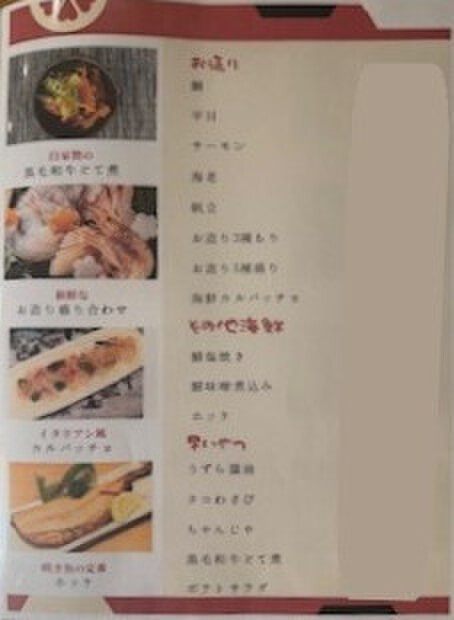 自家製の
黒毛和牛どて煮
新鮮な
お造り盛り合わせ
イタリアン風
カルパッチョ
焼き魚の定番
ホッケ
お造り
鯛
平目
サーモン
海老
帆立
お造り3種もり
お造り5種盛り
海鮮カルパッチョ
その他海鮮
鯖塩焼き
鯖味噌煮込み
ホッケ
早いやつ
うずら醤油
タコわさび
ちゃんじゃ
黒毛和牛どて煮
ポテトサラダ